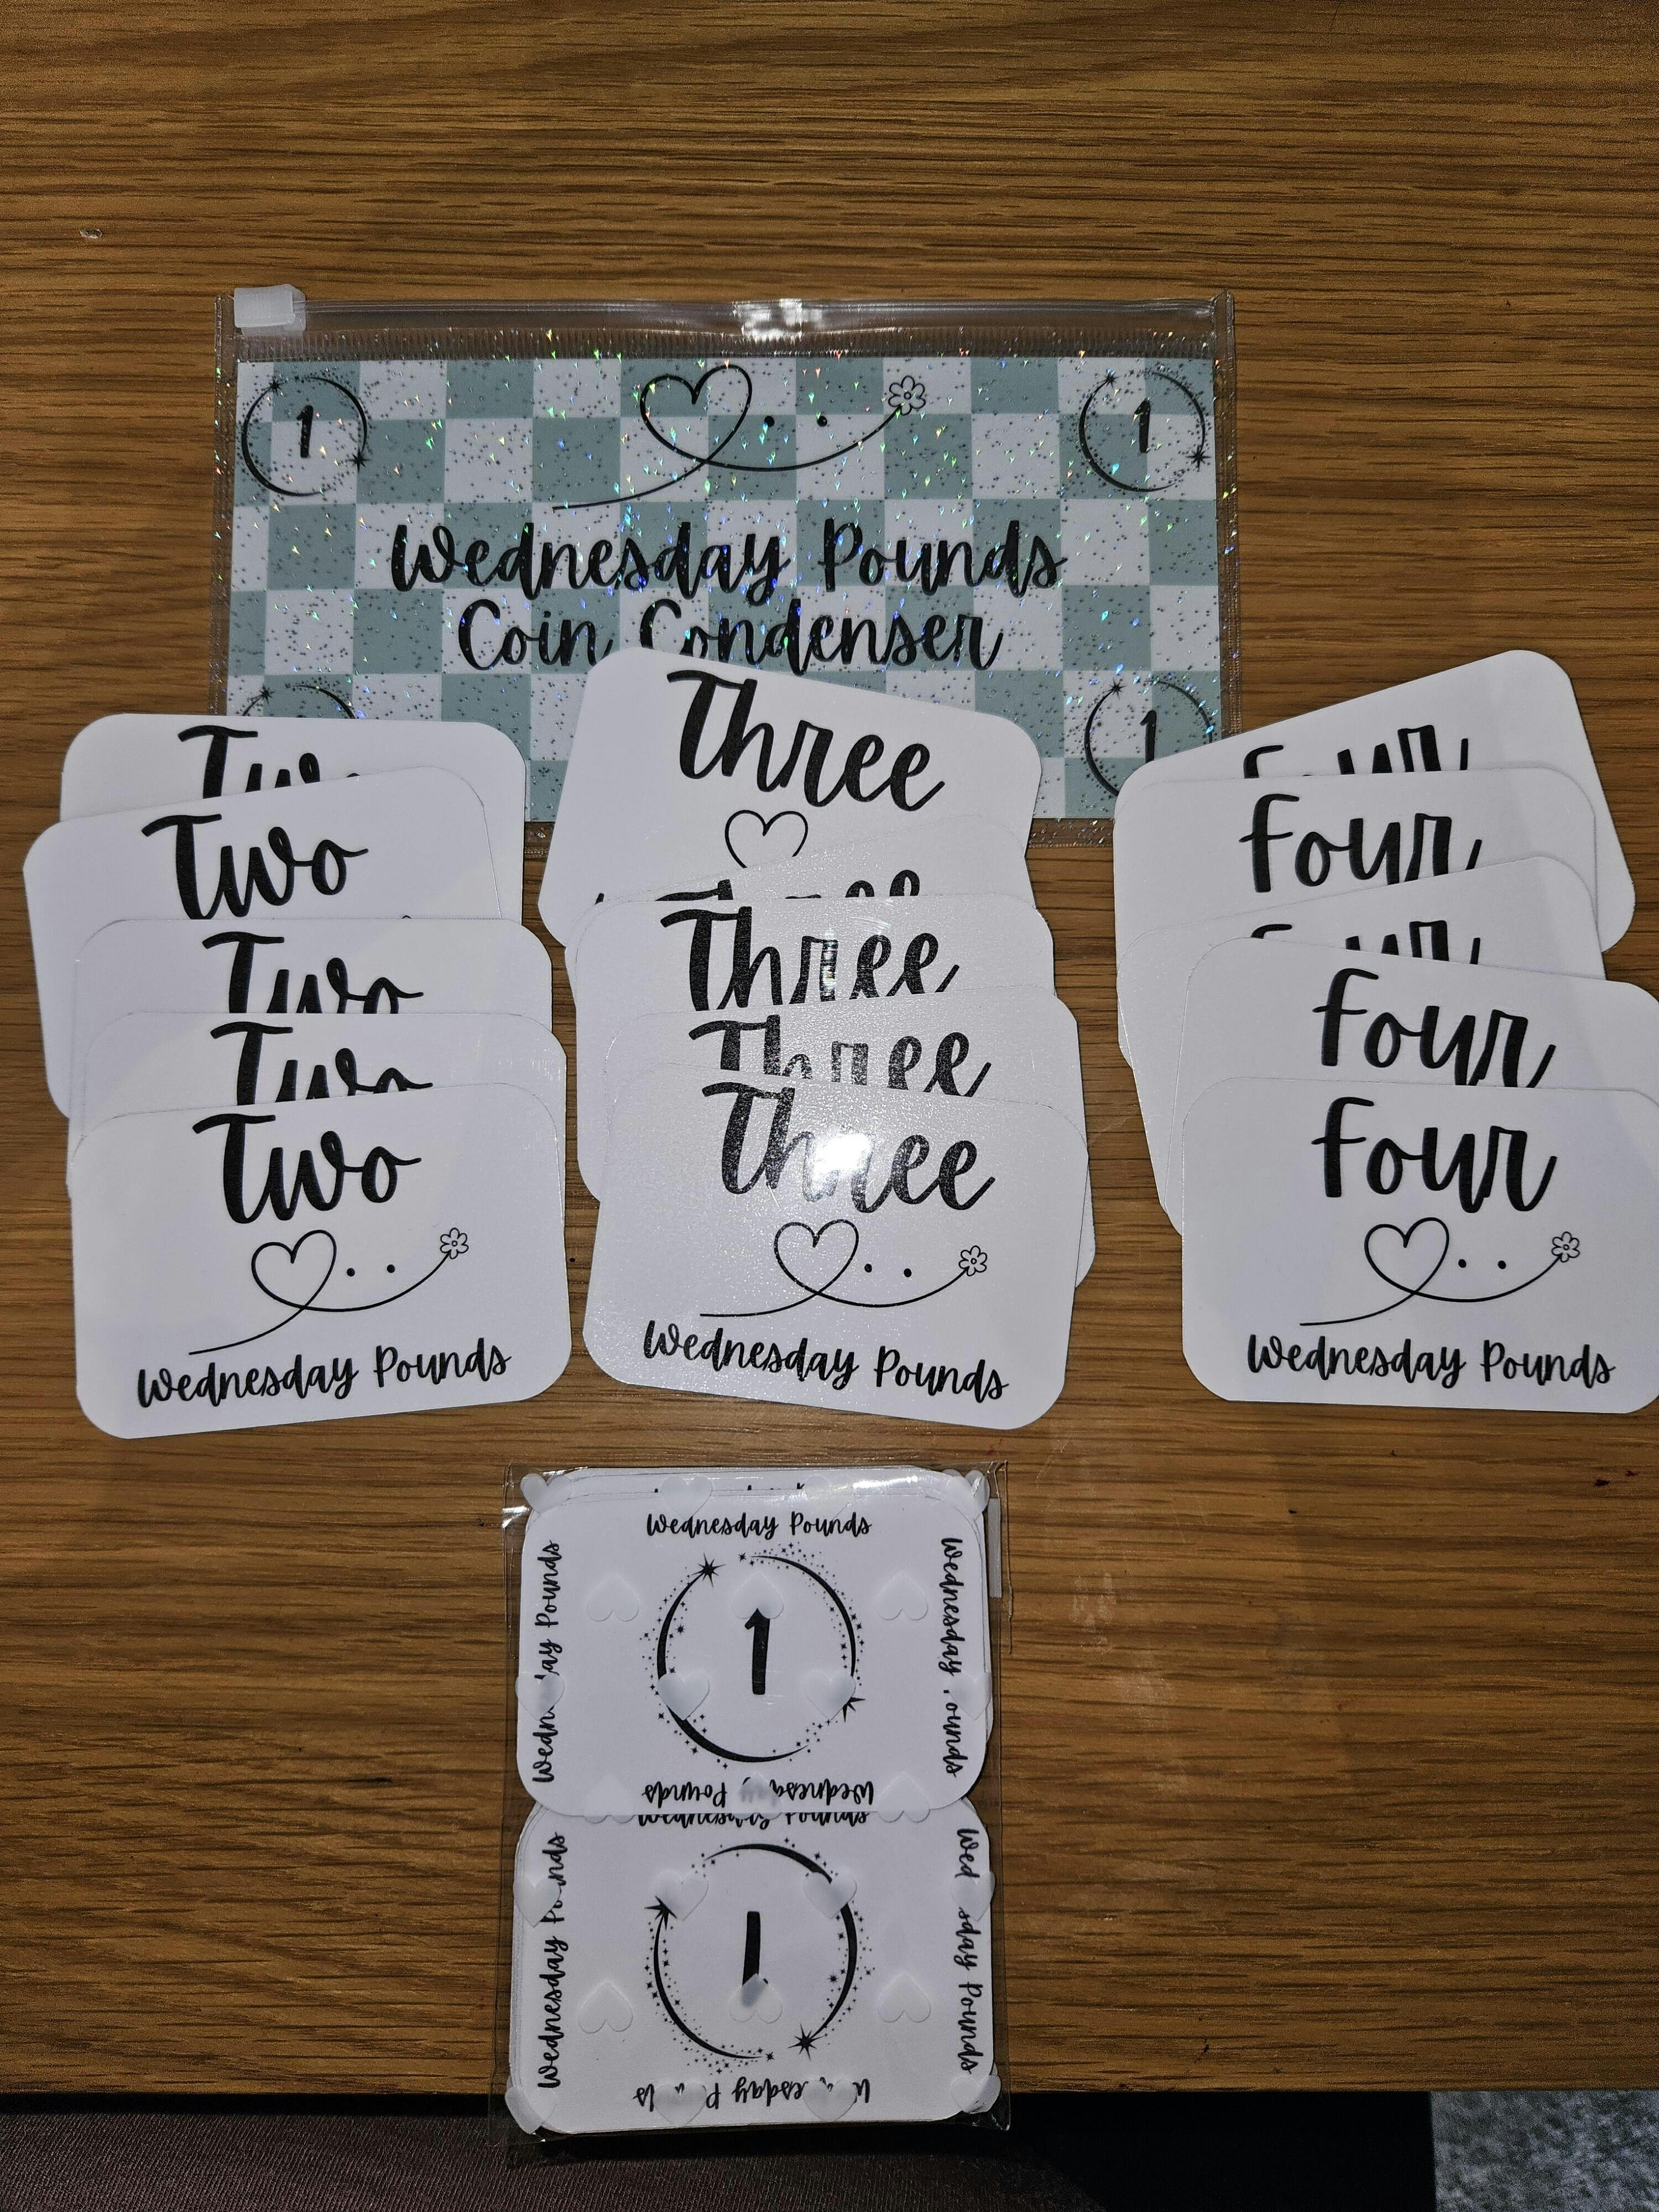 1
1
Wednesday Pounds
Coin Condenser
1
Two
Two
Two
Two
Two
Wednesday Pounds
Three
Three
Three
Three
Three
Wednesday Pounds
Four
Four
Four
Four
Four
Wednesday Pounds
Wednesday Pounds
Wednesday Pounds
1
Wednesday Pounds
Wednesday Pounds
Wednesday Pounds
Wednesday Pounds
1
Wednesday Pounds
Wednesday Pounds